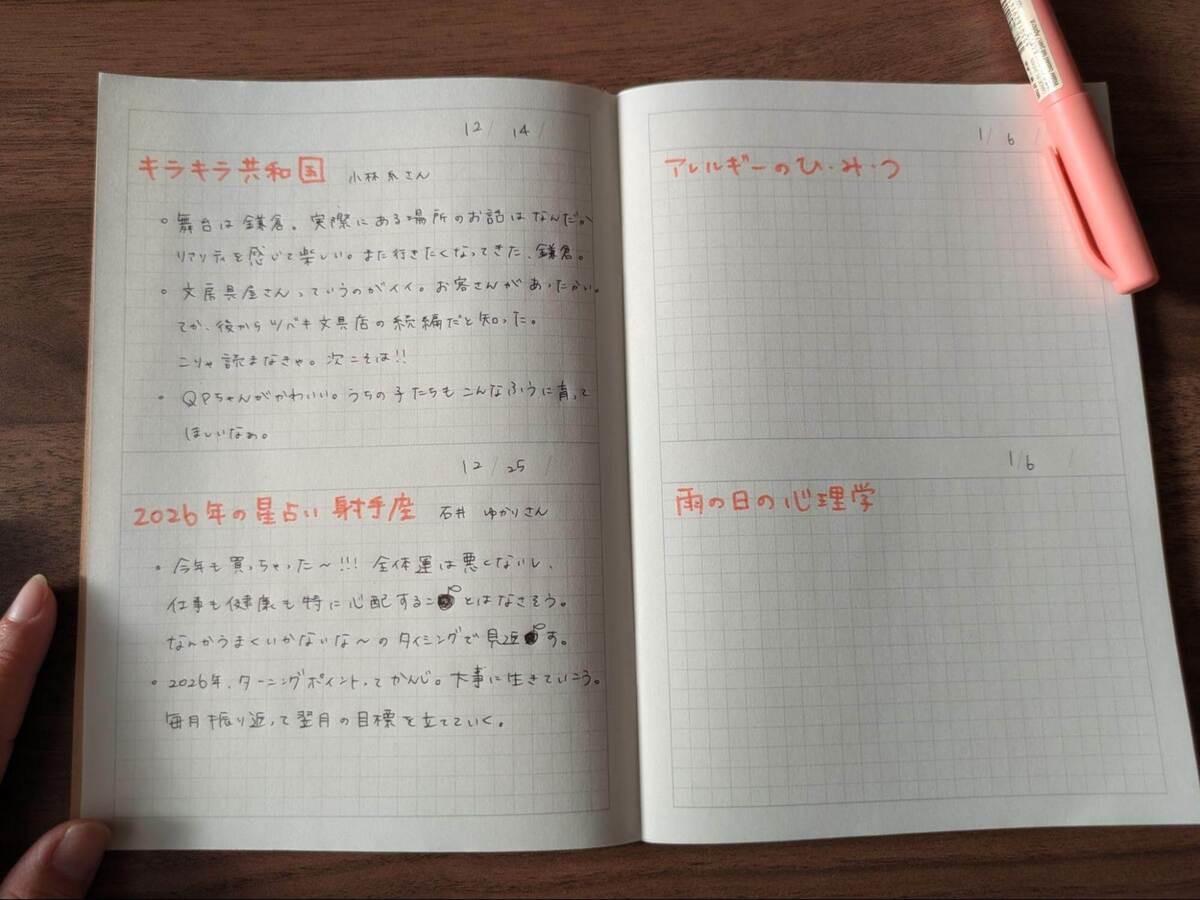 12/ 14/
キラキラ共和国 小林糸さん
。舞台は鎌倉。実際にある場所のお話はなんだか
リアリティを感じて楽しい。また行きたくなってきた、鎌倉。
。文房具屋さんっていうのがイイ。お客さんがあったかい。
てか、後からツバキ文具店の続編だと知った。
こりゃ読まなきゃ。次こそは!!
・QPちゃんがかわいい。うちの子たちもこんなふうに育って
ほしいなぁ。
12/ 25/
2026年の星占い 射手座 石井 ゆかりさん
。今年も買っちゃった〜!!! 全体運は悪くないし、
仕事も健康も特に心配することはなさそう。
なんかうまくいかないな〜のタイミングで見返す。
。2026年、ターニングポイントってかんじ。大事に生きていこう。
毎月振り返って翌月の目標を立てていく。
1/ 6/
アレルギーのひ・み・つ
1/6 /
雨の日の心理学